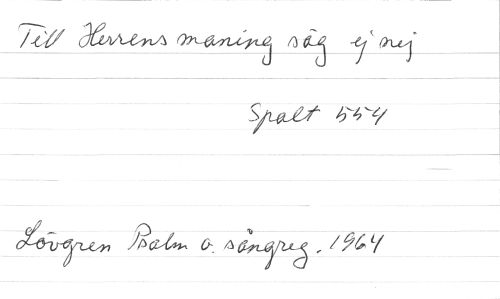 Till Herrens maning säg ej nej
Spalt 554
Lövgren Psalm o. sångreg. 1964